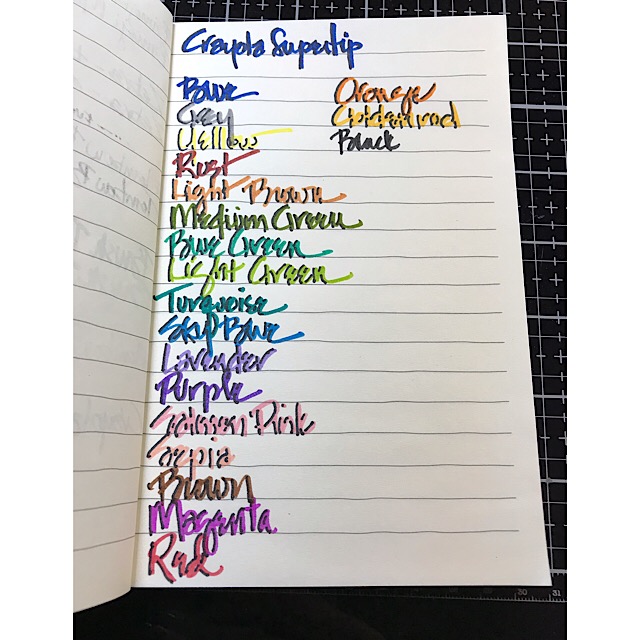 Crayola Supertip
Blue
Grey
Yellow
Rust
Light Brown
Medium Green
Blue Green
Light Green
Turquoise
Sky Blue
Lavender
Purple
Salmon Pink
Sepia
Brown
Magenta
Red
Orange
Goldenrod
Black
30 31